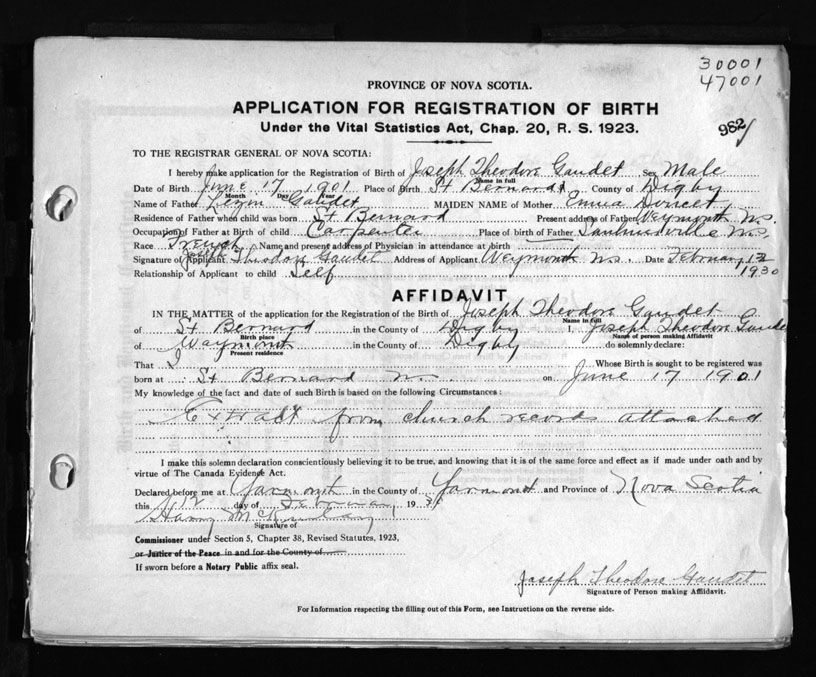 30001
47001
982
PROVINCE OF NOVA SCOTIA.
APPLICATION FOR REGISTRATION OF BIRTH
Under the Vital Statistics Act, Chap. 20, R. S. 1923.
TO THE REGISTRAR GENERAL OF NOVA SCOTIA:
I hereby make application for the Registration of Birth of Joseph Theodore Gaudet Sex Male
Name in full
Date of Birth June 17 1901 Place of Birth St Bernard County of Digby
Month Day Year
Name of Father Gaudet MAIDEN NAME of Mother Emma Doucet
Residence of Father when child was born St Bernard Present address of Father Weymouth N.S.
Occupation of Father at Birth of child Carpenter Place of birth of Father Saulnierville N.S.
Race French Name and present address of Physician in attendance at birth
Signature of Applicant Joseph Theodore Gaudet Address of Applicant Weymouth N.S. Date February 12 1930
Relationship of Applicant to child Self
AFFIDAVIT
IN THE MATTER of the application for the Registration of the Birth of Joseph Theodore Gaudet
Name in full
of St Bernard in the County of Digby I, Joseph Theodore Gaudet
Birth place Name of person making Affidavit
of Weymouth in the County of Digby do solemnly declare:
Present residence
That I Whose Birth is sought to be registered was
born at St Bernard N.S. on June 17 1901
My knowledge of the fact and date of such Birth is based on the following Circumstances:
Extract from church records attached
I make this solemn declaration conscientiously believing it to be true, and knowing that it is of the same force and effect as if made under oath and by
virtue of The Canada Evidence Act.
Declared before me at Yarmouth in the County of Yarmouth and Province of Nova Scotia
this 12 day of February 193
Harry
Signature of
Commissioner under Section 5, Chapter 38, Revised Statutes, 1923,
or Justice of the Peace in and for the County of
If sworn before a Notary Public affix seal.
Joseph Theodore Gaudet
Signature of Person making Affidavit.
For Information respecting the filling out of this Form, see Instructions on the reverse side.